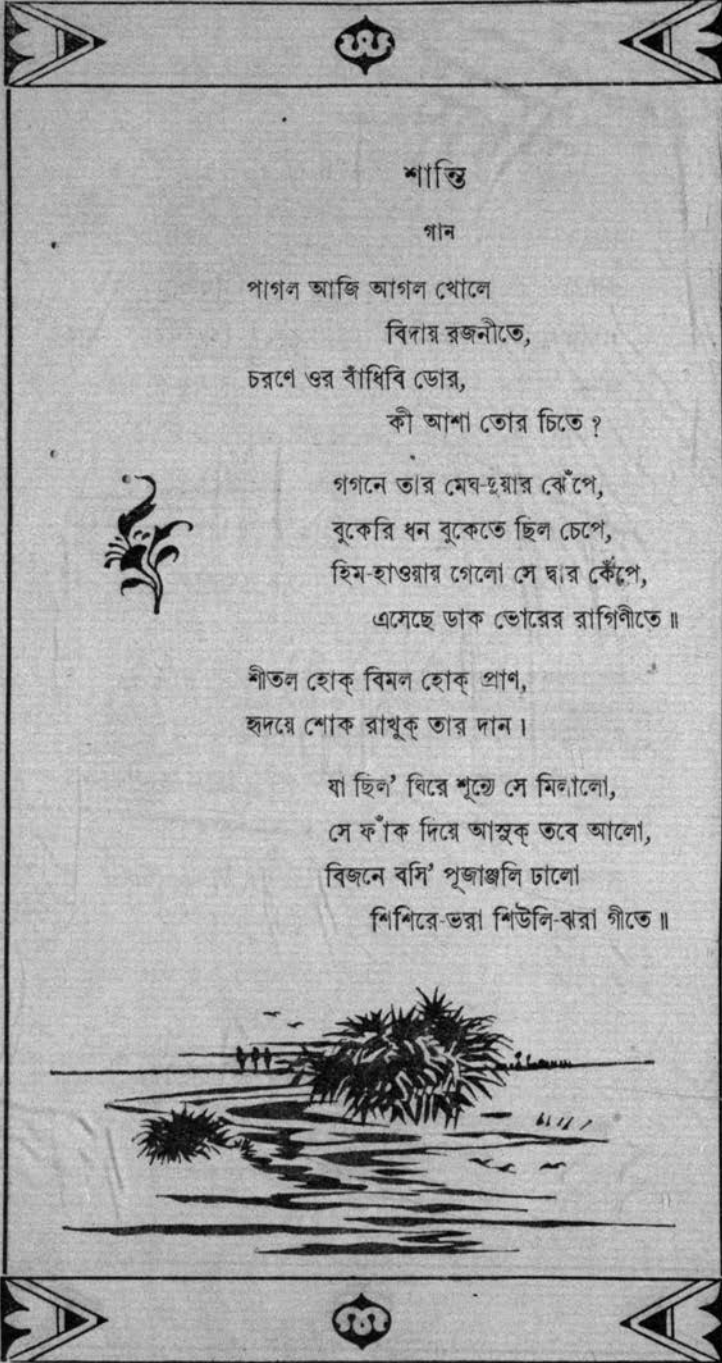 শান্তি
গান
পাগল আজি আগল খোলে
বিদায় রজনীতে,
চরণে ওর বাঁধিবি ডোর,
কী আশা তোর চিতে ?
গগনে তার মেঘ-দুয়ার ঝেঁপে,
বুকেরি ধন বুকেতে ছিল চেপে,
হিম-হাওয়ায় গেলো সে দ্বার কেঁপে,
এসেছে ডাক ভোরের রাগিণীতে ॥
শীতল হোক্ বিমল হোক্ প্রাণ,
হৃদয়ে শোক রাখুক্ তার দান।
যা ছিল’ ঘিরে শূন্যে সে মিলালো,
সে ফাঁক দিয়ে আসুক্ তবে আলো,
বিজনে বসি’ পূজাঞ্জলি ঢালো
শিশিরে-ভরা শিউলি-ঝরা গীতে ॥